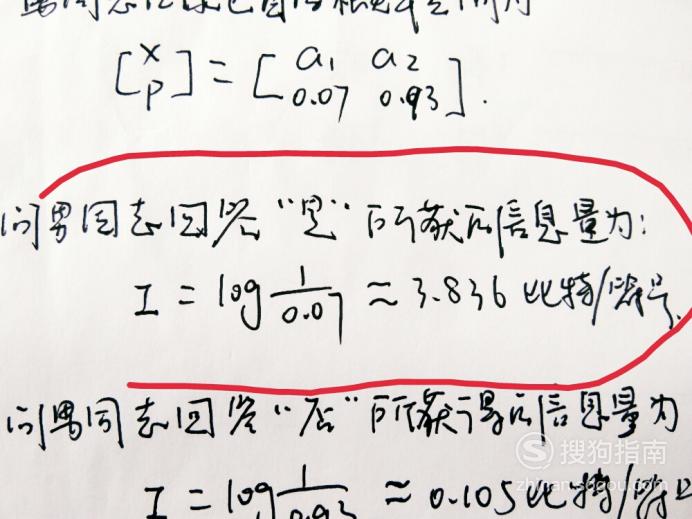 男同志红绿色盲的概率空间为
[X P] = [a1 a2 0.07 0.93].
问男同志回答“是”所获的信息量为:
I = log 1/0.07 ≈ 3.836 比特/符号.
问男同志回答“否”所获得的信息量为
I = log 1/0.93 ≈ 0.105 比特/符号
搜狗指南
zhinan.sogou.com